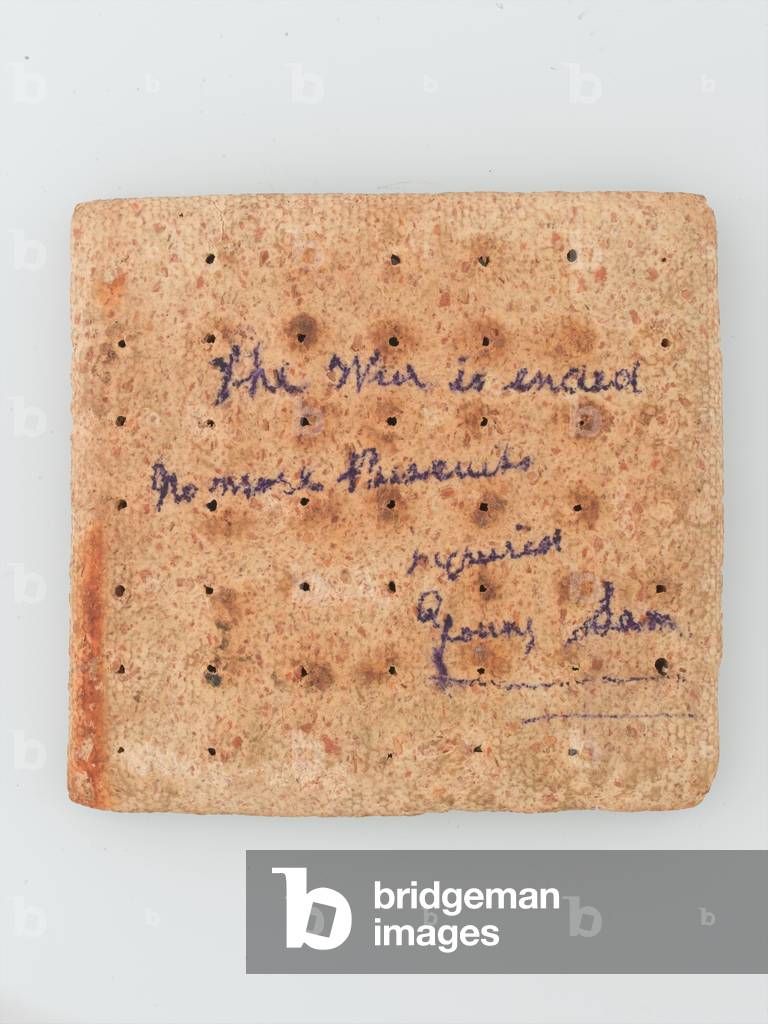 The War is ended
No more Biscuits
required
Young Sam
bridgeman
images